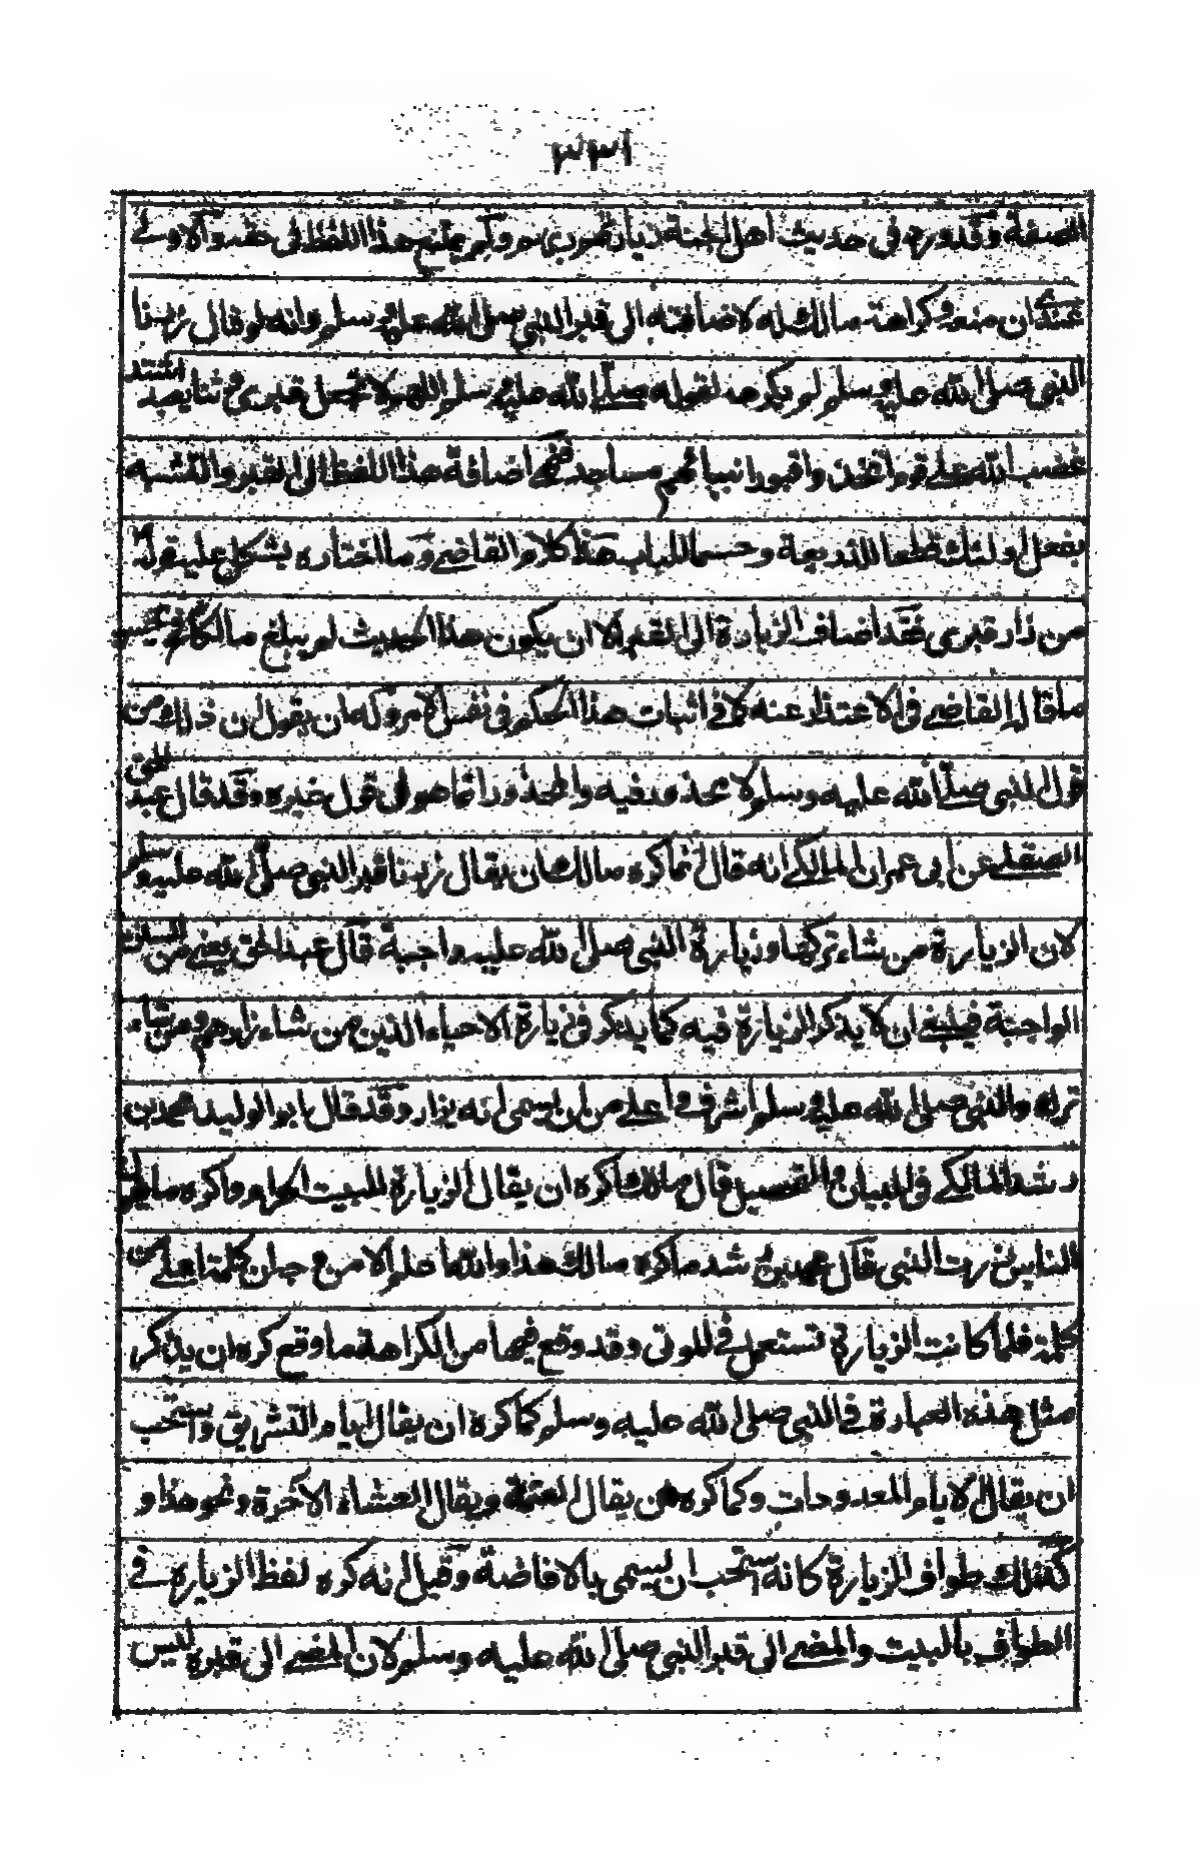 ١٣٣
الصفة وقد ورد فى حديث اهل الجنة زيارتهم لربهم ولم يمتنع هذا اللفظ فى حقه والاولى
عندى ان منعه وكراهة مالك له لاضافته الى قبر النبى صلى الله عليه وسلم وانه لو قال زرنا
النبى صلى الله عليه وسلم لم يكرهه لقوله صلى الله عليه وسلم اللهم لا تجعل قبرى وثنا يعبد اشتد
غضب الله على قوم اتخذوا قبور انبيائهم مساجد فحمى اضافة هذا اللفظ الى القبر والتشبه
بفعل اولئك قطعا للذريعة وحسما للباب هذا كلام القاضى وما اختاره يشكل عليه قوله
من زار قبرى فقد اضاف الزيارة الى القبر الا ان يكون هذا الحديث لم يبلغ مالكا فحينئذ يحسن
ما قاله القاضى فى الاعتذار عنه لا فى اثبات هذا الحكم فى نفس الامر وله ان يقول ان ذلك من
قول النبى صلى الله عليه وسلم لا محذور فيه والمحذور انما هو فى قول غيره وقد قال عبد الحق
الصقلى عن ابى عمران المالكى انه قال انما كره مالك ان يقال زرنا قبر النبى صلى الله عليه وسلم
لان الزيارة من شاء تركها وزيارة النبى صلى الله عليه واجبة قال عبد الحق يعنى من السنن
الواجبة فينبغى ان لا يذكر الزيارة فيه كما يذكر فى زيارة الاحياء الذين من شاء زارهم ومن شاء
ترك والنبى صلى الله عليه وسلم اشرف واعلى من ان يسمى انه يزار وقد قال ابو الوليد محمد بن
رشد المالكى فى البيان والتحصيل قال مالك اكره ان يقال الزيارة للبيت الحرام واكره ما يقول
الناس زرت النبى قال محمد بن رشد ما كره مالك هذا والله اعلم الا من وجه ان كلمة اعلى من
كلمة فلما كانت الزيارة تستعمل فى الموتى وقد وقع فيها من الكراهة ما وقع كره ان يذكر
مثل هذه العبارة فى النبى صلى الله عليه وسلم كما كره ان يقال ايام التشريق واستحب
ان يقال الايام المعدودات وكما كره ان يقال العتمة ويقال العشاء الآخرة ونحو هذا و
كذلك طواف الزيارة كانه استحب ان يسمى بالافاضة وقيل انه كره لفظ الزيارة فى
الطواف بالبيت والمضى الى قبر النبى صلى الله عليه وسلم لان المضى الى قبره ليس